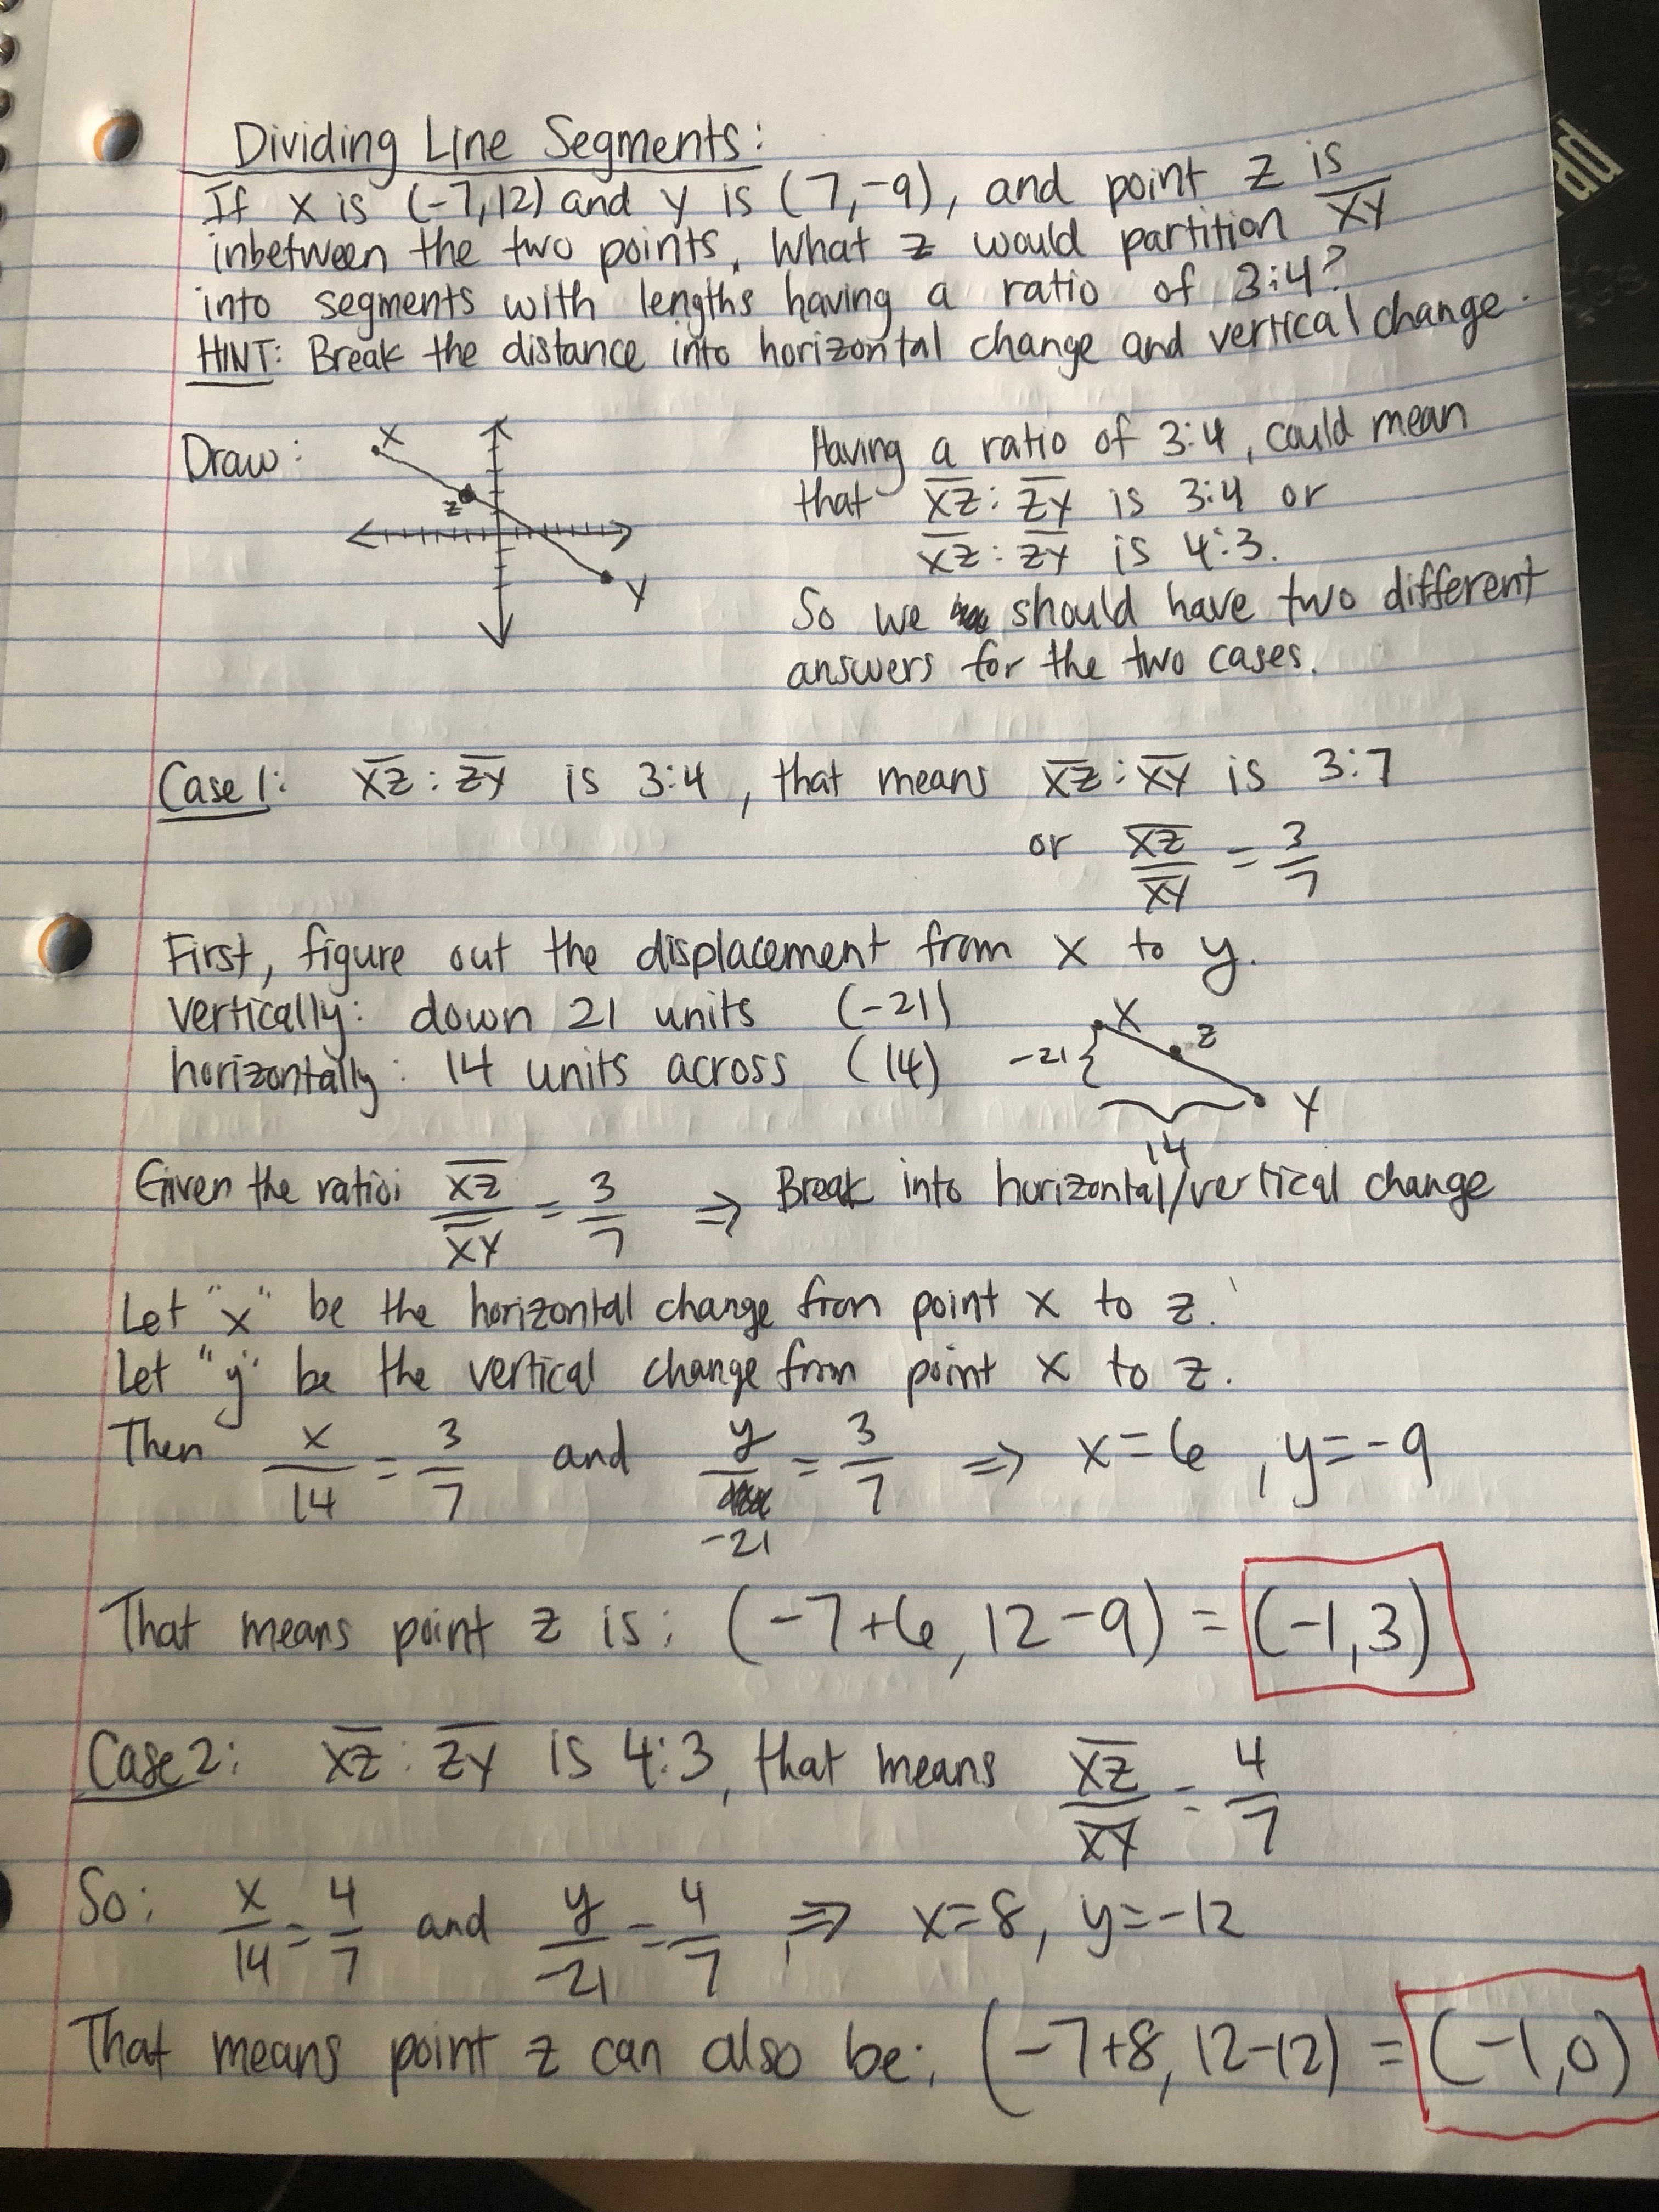 Dividing Line Segments:
If X is (-7,12) and Y is (7,-9), and point Z is
inbetween the two points. What Z would partition X̅Y̅
into segments with lengths having a ratio of 3:4?
HINT: Break the distance into horizontal change and vertical change.
Draw:
X
Z
Y
Having a ratio of 3:4, could mean
that X̅Z̅ : Z̅Y̅ is 3:4 or
X̅Z̅ : Z̅Y̅ is 4:3.
So we should have two different
answers for the two cases.
Case 1: X̅Z̅ : Z̅Y̅ is 3:4, that means X̅Z̅ : X̅Y̅ is 3:7
or X̅Z̅/X̅Y̅ = 3/7
First, figure out the displacement from X to Y.
vertically: down 21 units (-21)
horizontally: 14 units across (14)
X
Z
-21
Y
14
Given the ratio: X̅Z̅/X̅Y̅ = 3/7 ⇒ Break into horizontal/vertical change
Let "x" be the horizontal change from point X to Z.
Let "y" be the vertical change from point X to Z.
Then x/14 = 3/7 and y/-21 = 3/7 ⇒ x=6, y=-9
That means point Z is: (-7+6, 12-9) = (-1,3)
Case 2: X̅Z̅ : Z̅Y̅ is 4:3, that means X̅Z̅/X̅Y̅ = 4/7
So: x/14 = 4/7 and y/-21 = 4/7, ⇒ x=8, y=-12
That means point Z can also be: (-7+8, 12-12) = (-1,0)